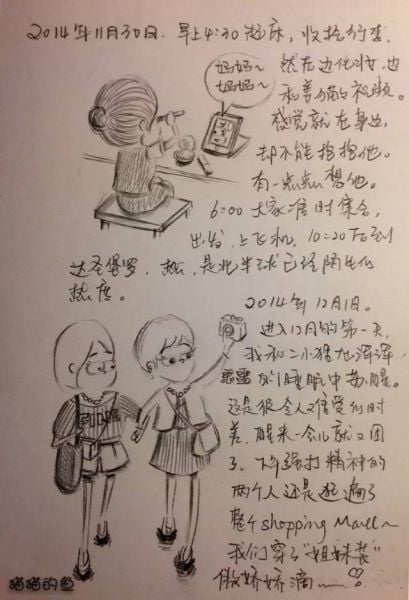 2014年11月30日. 早上4:30起床, 收拾行李.
妈妈~
妈妈~
然后边化妆, 边
和姜猫视频。
感觉就在身边,
却不能抱抱他。
有一点点想他。
6:00 大家准时集合,
出发, 上飞机, 10:20左右到
达圣保罗, 热, 是北半球已经陌生的
热度。
2014年12月1日。
进入12月的第一天,
我和二小猪在浑浑
噩噩的睡眠中苏醒。
还是很令人难受的时
差, 醒来一会儿就又困
了, 下午强打精神的
两个人还是逛遍了
整个shopping Mall~
我们穿了"姐妹装"
傲娇娇滴......
猫猫的鱼